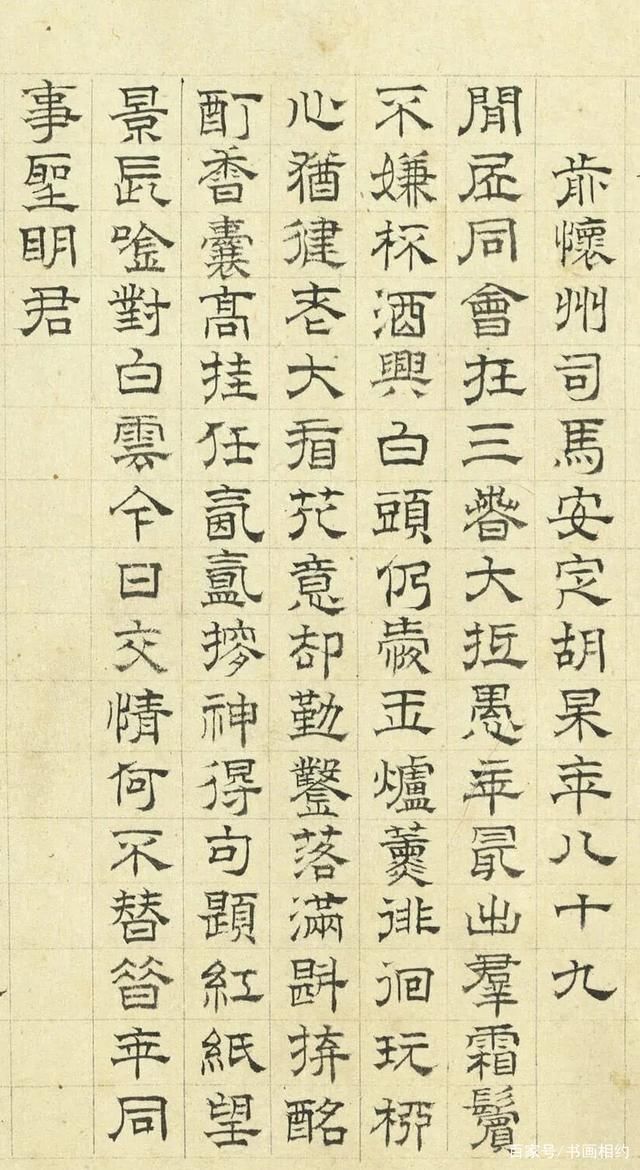 前懷州司馬安定胡杲年八十九
閒居同會在三春大抵愚年最出羣霜鬢
不嫌杯酒興白頭仍愛玉爐薰徘徊玩柳
心猶健老大看花意却勤鑿落滿斟拚酩
酊香囊高挂任氤氳搜神得句題紅紙望
景長唫對白雲今日交情何不替年同
事聖明君
百家号/书画相约